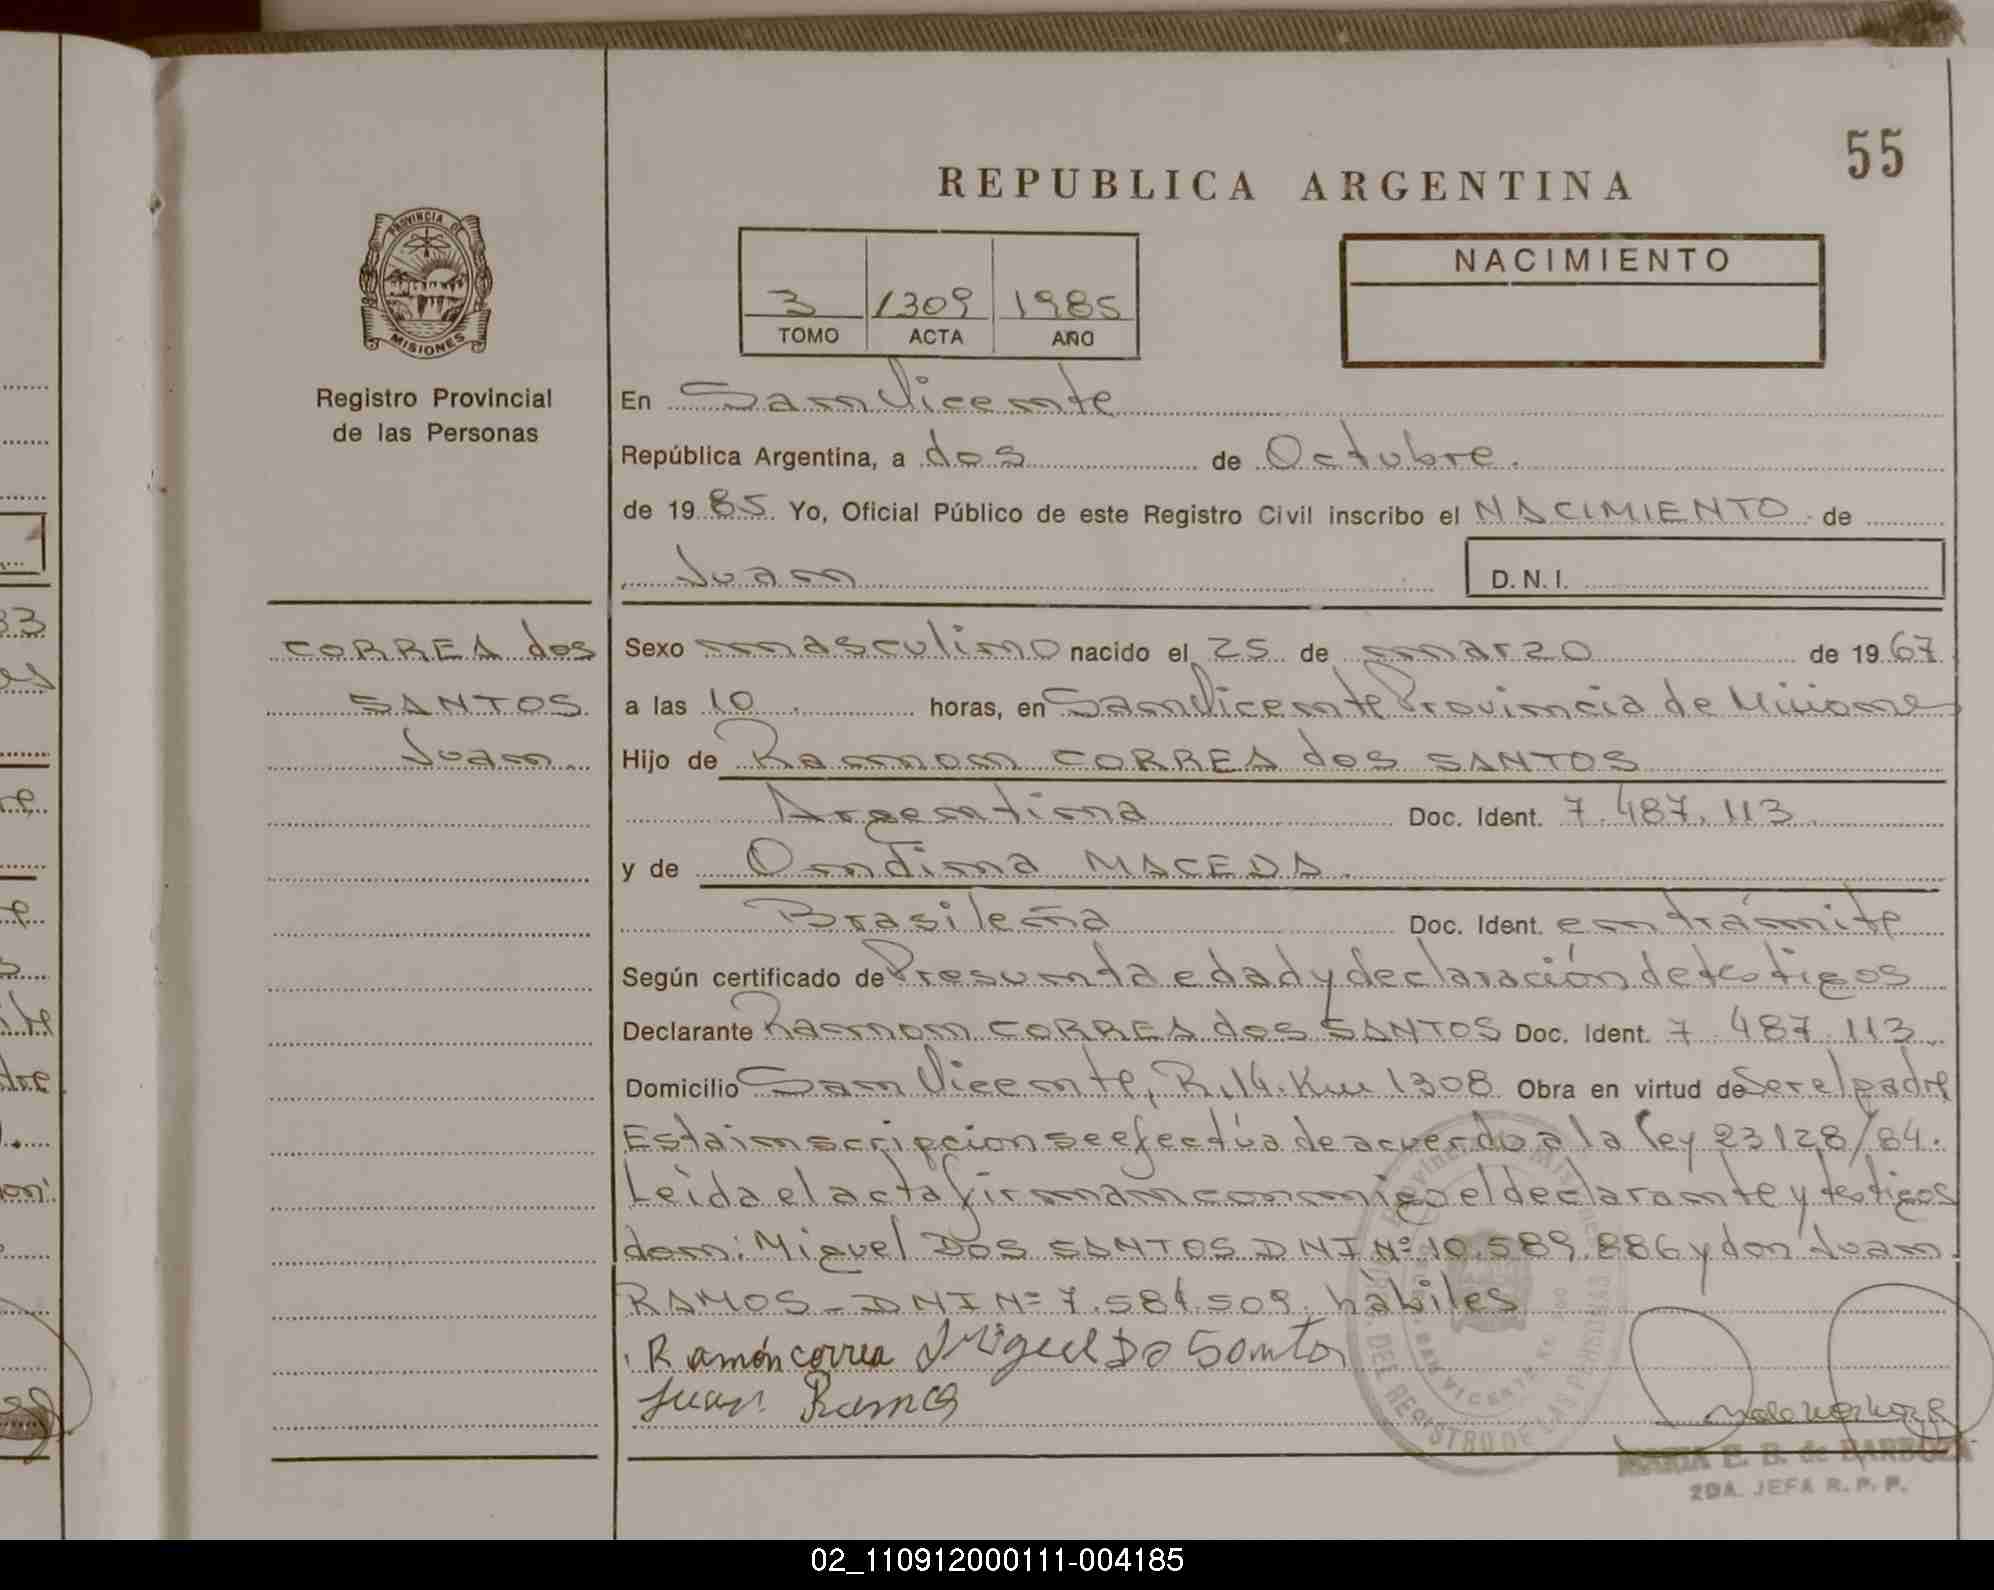 55
REPUBLICA ARGENTINA
PROVINCIA DE
MISIONES
Registro Provincial
de las Personas
NACIMIENTO
3 1309 1985
TOMO ACTA AÑO
En San Vicente
República Argentina, a dos de Octubre.
de 1985. Yo, Oficial Público de este Registro Civil inscribo el NACIMIENTO de
Juan D.N.I.
CORREA dos
SANTOS
Juan.
Sexo masculino nacido el 25 de marzo de 1967
a las 10 horas, en San Vicente Provincia de Misiones
Hijo de Ramon CORREA dos SANTOS
Argentina Doc. Ident. 7.487.113
y de Ondina MACEDA.
Brasileña Doc. Ident. en trámite
Según certificado de Presunta edad y declaración de testigos
Declarante Ramon CORREA dos SANTOS Doc. Ident. 7.487.113
Domicilio San Vicente, R.14. Km 1308 Obra en virtud de Ser el padre
Esta inscripcion se efectúa de acuerdo a la ley 23128/84.
Leida el acta firman conmigo el declarante y testigos
don: Miguel DOS SANTOS DNI Nº 10.589.886 y don Juan
RAMOS - DNI Nº 7.584.509, hábiles
Ramón correa Miguel Do Santo
Juan Ramos
MARIA E. B. de BARBOZA
2DA. JEFA R. P. P.
02_110912000111-004185